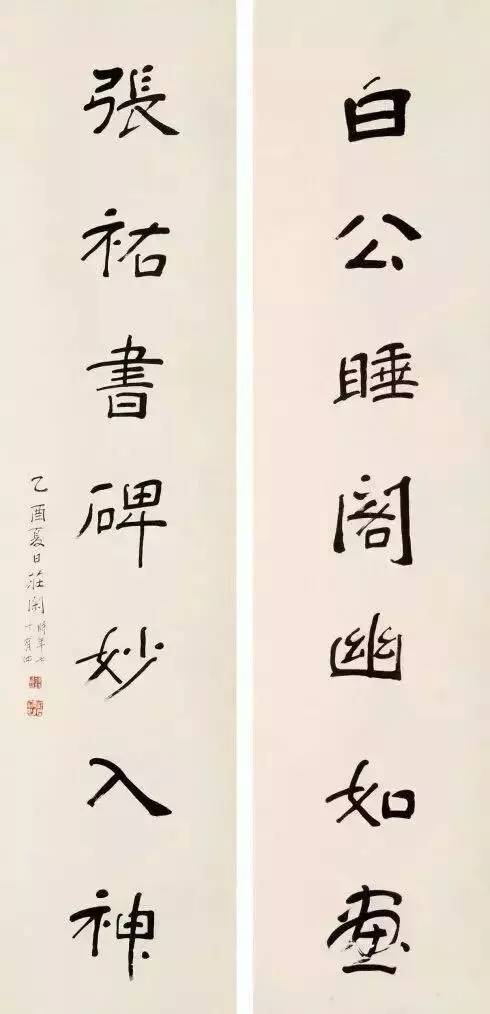 白公睡閣幽如畫
張祐書碑妙入神
乙酉夏日莊閑時年七
十有四